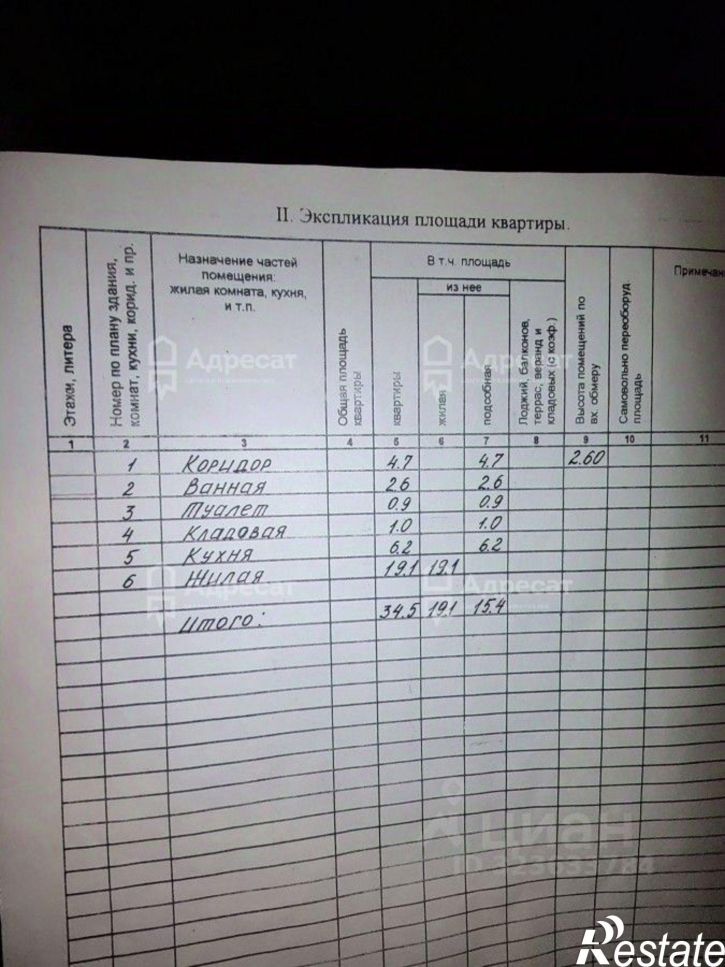 II. Экспликация площади квартиры.
Этажи, литера
Номер по плану здания, комнат, кухни, корид. и пр.
Назначение частей
помещения:
жилая комната, кухня,
и т.п.
Общая площадь
квартиры
В т.ч. площадь
из нее
квартиры
жилая
подсобная
Лоджий, балконов,
террас, веранд и
кладовых (с коэф.)
Высота помещений по
вх. обмеру
Самовольно переоборуд
площадь
Примечан
1 2 3 4 5 6 7 8 9 10 11
1 Коридор 4.7 4.7 2.60
2 Ванная 2.6 2.6
3 Туалет 0.9 0.9
4 Кладовая 1.0 1.0
5 Кухня 6.2 6.2
6 Жилая 19.1 19.1
Итого: 34.5 19.1 15.4
Адресат
Адресат
Адресат
Адресат
циан
Restate